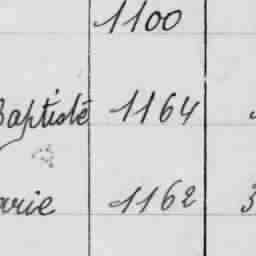 1100
Baptiste 1164
arie 1162 3